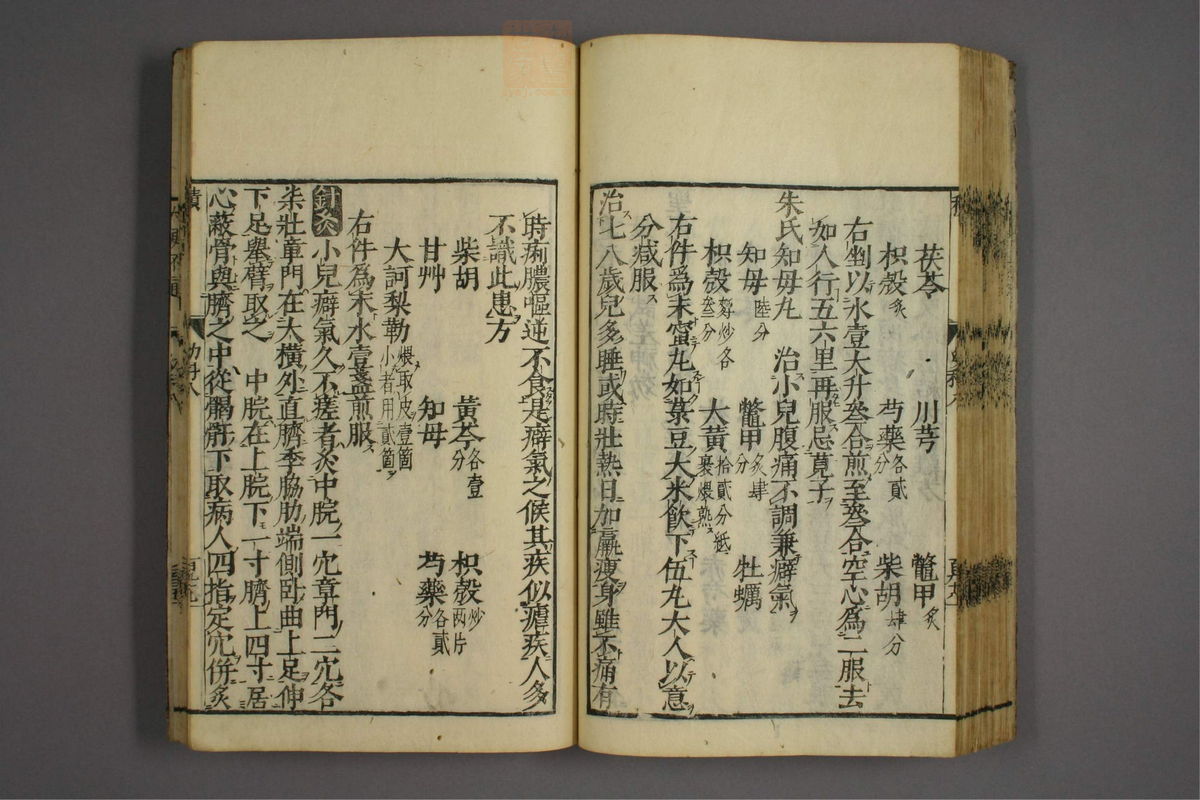 茯苓　川芎　鼈甲炙
枳殼炙　芍藥各貳分　柴胡肆分
右剉以水壹大升叄合煎至叄合空心爲二服去
如人行五六里再服忌莧子
朱氏知母丸　治小兒腹痛不調兼癖氣
知母陸分　鼈甲炙肆分　牡蠣
枳殼麸炒各叄分　大黃拾貳分紙裹煨熟
右件爲末蜜丸如菉豆大米飲下伍丸大人以意
分減服
治七八歲兒多睡或時壯熱日加羸瘦身雖不痛有
時痢膿嘔逆不食是癖氣之候其疾似瘧疾人多
不識此患方
柴胡　黃芩各壹分　枳殼炒兩片
甘艸　知母　芍藥各貳分
大訶梨勒煨取皮壹箇小者用貳箇
右件爲末水壹盞煎服
針灸　小兒癖氣久不瘥者灸中脘一穴章門二穴各
柒壯章門在大橫外直臍季脇肋端側卧曲上足伸
下足舉臂取之　中脘在上脘下一寸臍上四寸居
心蔽骨與臍之中從𩩲骬下取病人四指定穴併炙